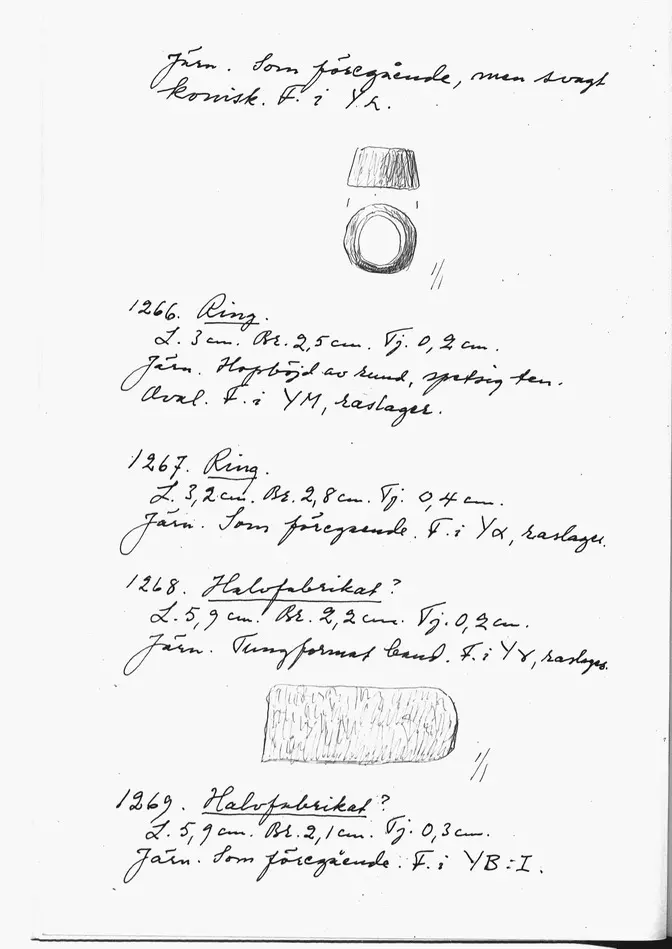 Järn. Som föregående, men svagt
konisk. F. i Y
1/1
1266. Ring.
L. 3 cm. Br. 2,5 cm. Tj. 0,2 cm.
Järn. Hopböjd av rund, spetsig ten.
Oval. F. i YM, raslager.
1267. Ring.
L. 3,2 cm. Br. 2,8 cm. Tj. 0,4 cm.
Järn. Som föregående. F. i Yα, raslager.
1268. Halvfabrikat?
L. 5,9 cm. Br. 2,2 cm. Tj. 0,2 cm.
Järn. Tungformat band. F. i Yγ, raslager.
1/1
1269. Halvfabrikat?
L. 5,9 cm. Br. 2,1 cm. Tj. 0,3 cm.
Järn. Som föregående. F. i YB:I.